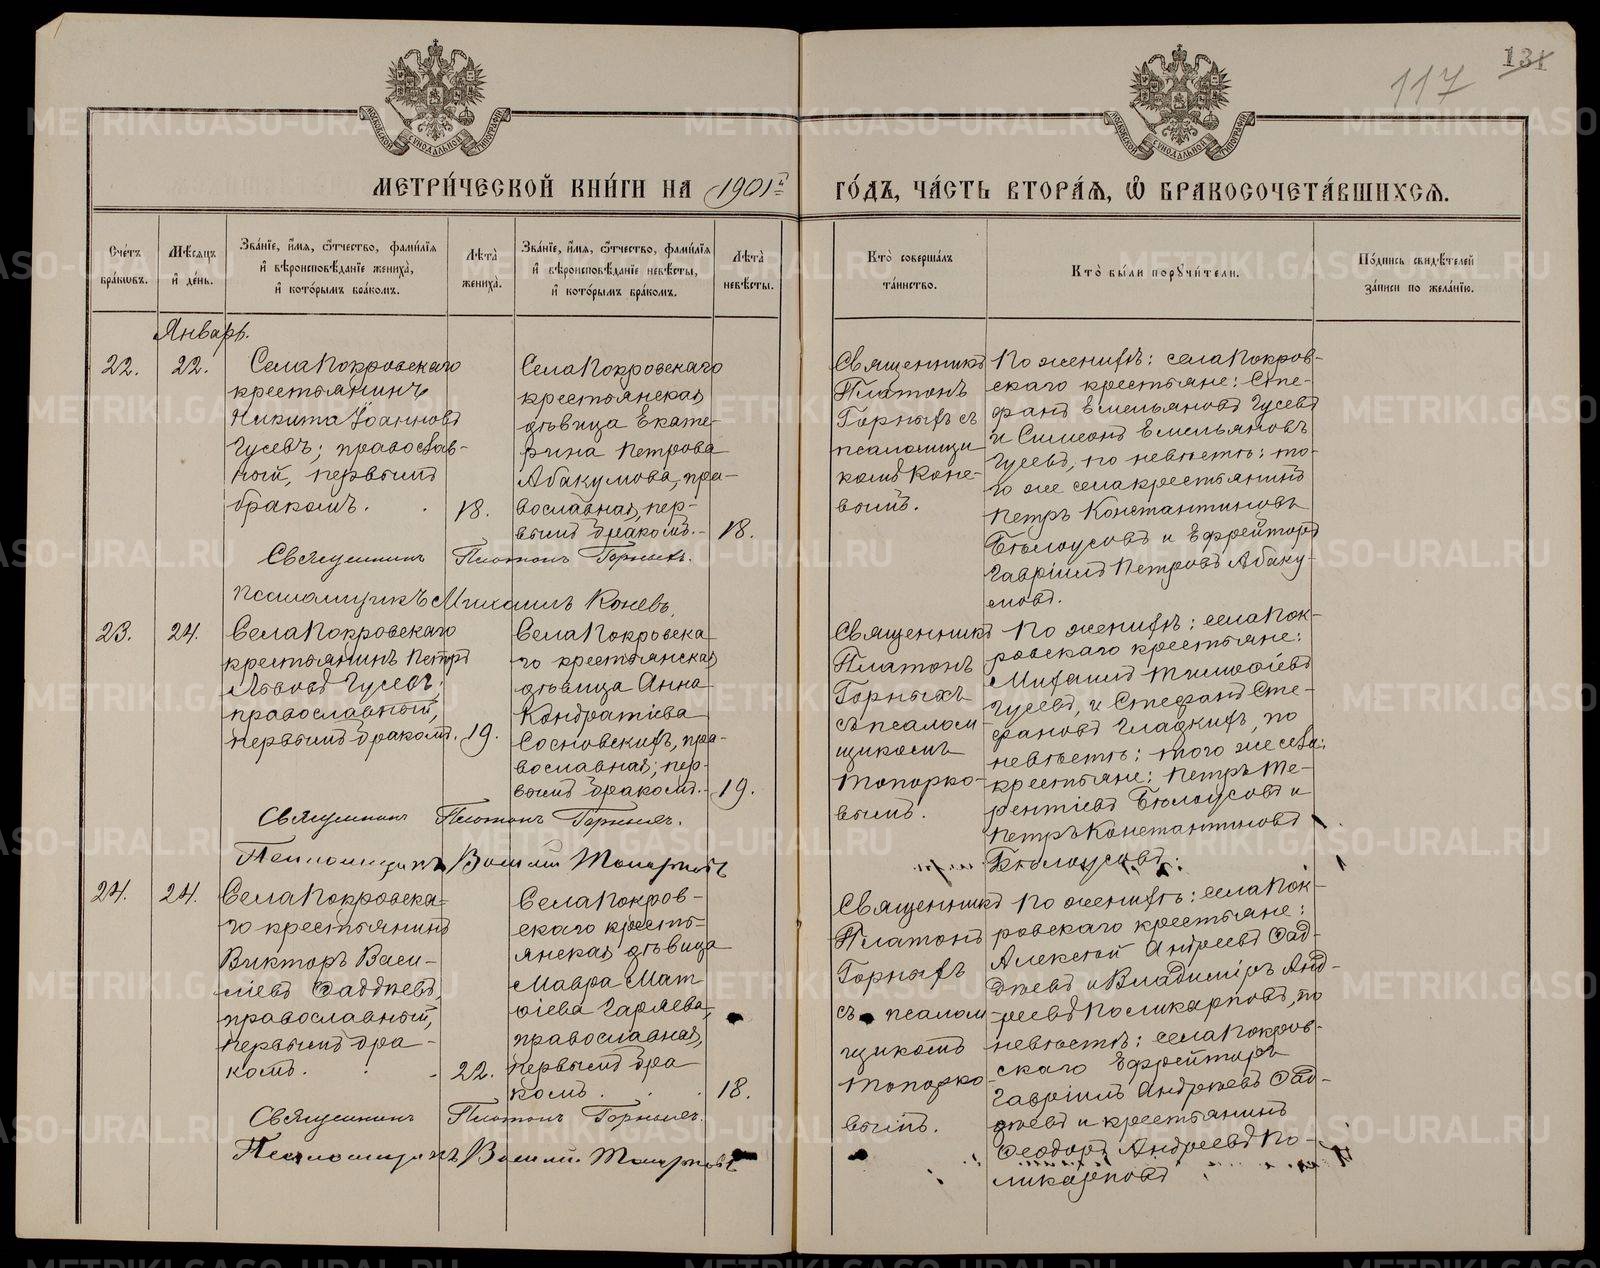 117
131
МОСКОВСКОЙ СѴНОДАЛЬНОЙ ТИПОГРАФІИ
МОСКОВСКОЙ СѴНОДАЛЬНОЙ ТИПОГРАФІИ
МЕТРИ́ЧЕСКОЙ КНИ́ГИ НА 1901й ГО́ДЪ, ЧА́СТЬ ВТОРА́Я, Ѡ БРАКОСОЧЕТА́ВШИХСЯ.
Сче́тъ бра́кѡвъ.
Мѣ́сяцъ и҆ де́нь.
Зва́нїе, и҆́мя, ѻ҆́тчество, фами́лїя и҆ вѣроисповѣ́данїе жениха̀, и҆ кото́рымъ бра́комъ.
Лѣ́та жениха̀.
Зва́нїе, и҆́мя, ѻ҆́тчество, фами́лїя и҆ вѣроисповѣ́данїе невѣ́сты, и҆ кото́рымъ бра́комъ.
Лѣ́та невѣ́сты.
Кто̀ соверша́лъ та́инство.
Кто̀ бы́ли порꙋчи́тели.
По́дпись свидѣ́телей за́писи по жела́нїю.
Январь.
22.
22.
Села Покровскаго
крестьянинъ
Никита Іоанновъ
Гусевъ; православ-
ный, первымъ
бракомъ.
18.
Села Покровскаго
крестьянская
дѣвица Екате-
рина Петрова
Абакумова, пра-
вославная, пер-
вымъ бракомъ.
18.
Священникъ
Платонъ
Горныхъ съ
псаломщи
комъ Коне-
вымъ.
По женихѣ: села Покров-
скаго крестьяне: Сте-
фанъ Емельяновъ Гусевъ
и Симеонъ Емельяновъ
Гусевъ, по невѣстѣ: то-
го же села крестьянинъ
Петръ Константиновъ
Бѣлоусовъ и Ефрейторъ
Гавріилъ Петровъ Абаку-
мовъ.
Священникъ Платонъ Горныхъ.
Псаломщикъ Михаилъ Коневъ.
23.
24.
Села Покровскаго
крестьянинъ Петръ
Львовъ Гусевъ;
православный,
первымъ бракомъ.
19.
Села Покровска
го крестьянская
дѣвица Анна
Кондратіева
Сосновскихъ, пра-
вославная; пер-
вымъ бракомъ.
19.
Священникъ
Платонъ
Горныхъ
съ псалом
щикомъ
Топорко-
вымъ.
По женихѣ: села Пок-
ровскаго крестьяне:
Михаилъ Тимоѳіевъ
Гусевъ, и Стефанъ Сте-
фановъ Гладкихъ, по
невѣстѣ: того же села:
крестьяне: Петръ Те-
рентіевъ Бѣлоусовъ и
Петръ Константиновъ
Бѣлоусовъ.
Священникъ Платонъ Горныхъ.
Псаломщикъ Василій Топорковъ
24.
24.
Села Покровска-
го крестьянинъ
Викторъ Васи-
ліевъ Ѳаддѣевъ,
православный,
первымъ бра-
комъ.
22.
Села Покров-
скаго кресть-
янская дѣвица
Мавра Мат
ѳіева Гаряева,
православная,
первымъ бра
комъ.
18.
Священникъ
Платонъ
Горныхъ
съ псалом
щикомъ
Топорко
вымъ.
По женихѣ: села Пок-
ровскаго крестьяне:
Алексѣй Андреевъ Ѳад-
дѣевъ и Владиміръ Анд-
реевъ Поликарповъ, по
невѣстѣ: села Покров-
скаго Ефрейторъ
Гавріилъ Андреевъ Ѳад-
дѣевъ и крестьянинъ
Ѳеодоръ Андреевъ По-
ликарповъ
Священникъ Платонъ Горныхъ.
Псаломщикъ Василій Топорковъ
METRIKI.GASO-URAL.RU